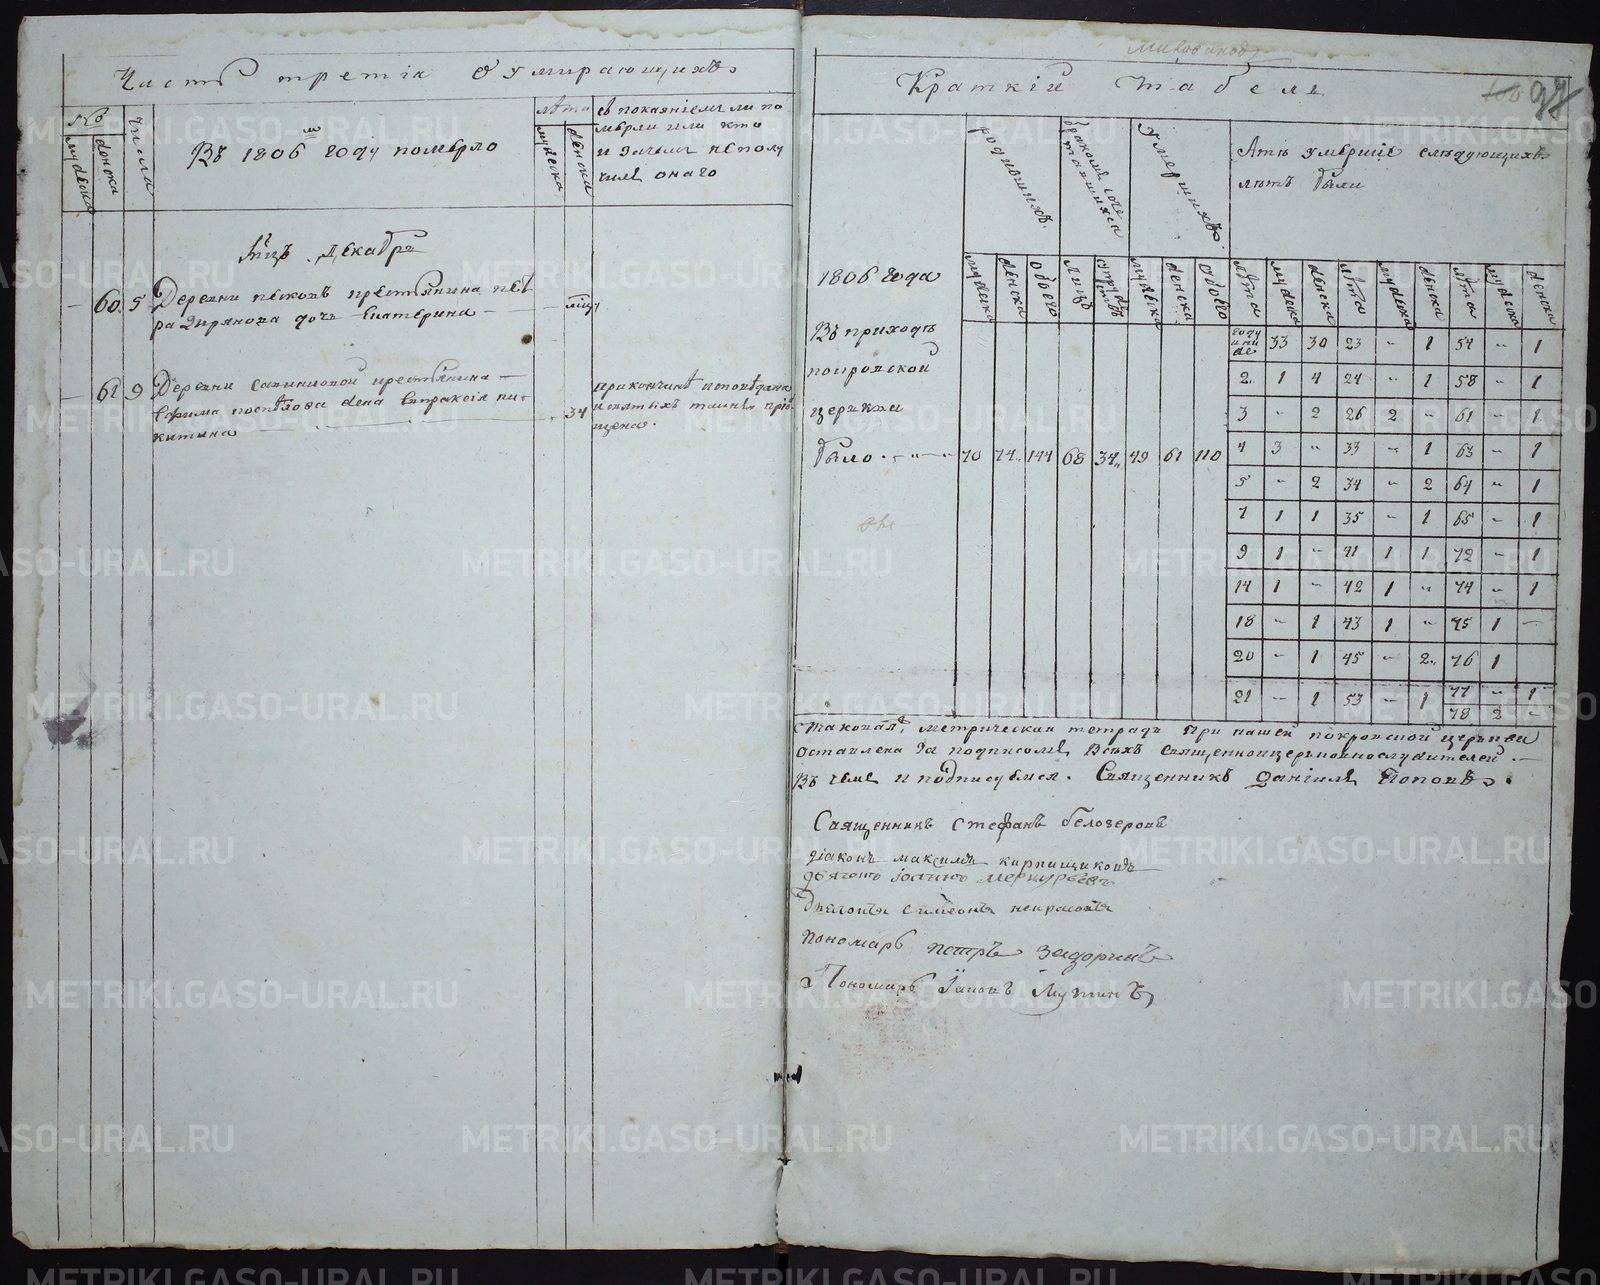 Часть третія о умирающихъ
№
мужеска
женска
числа
Въ 1806м году померло
лѣта
мужеска
женска
съ покаяніемъ ли по
мѣрли или кто
и зачемъ не полу
чилъ онаго
Мцъ Декабрь
60 5 Деревни песковъ крестьянина пет
ра Ширякова дочь Екатерина
61 9 Деревни савиновой крестьянина
Ефима поспѣлова жена Евпраксія ни-
китина
34
при кончинѣ исповѣдана
и святыхъ таинъ приоб
щена.
Краткій табель
100 97
1806 года
Въ приходѣ
покровской
церкви
было 70 74 144 68 34 49 61 110
родившихъ
бракомъ соче
тавшихся
умершихъ
Лѣтъ умершіе слѣдующихъ
лѣтъ были
мужеска женска обоего лицъ мужеска женска обоего лѣта мужеска женска лѣта мужеска женска лѣта мужеска женска
году и ниже 33 30 23 " 1 54 " 1
2 1 4 24 " 1 58 " 1
3 " 2 26 2 " 61 " 1
4 3 " 33 " 1 63 " 1
5 " 2 34 " 2 64 " 1
7 1 1 35 " 1 65 " 1
9 1 " 41 1 1 72 " 1
14 1 " 42 1 " 74 " 1
18 " 1 43 1 " 75 1 "
20 " 1 45 " 2 76 1
21 " 1 53 " 1 77 " 1
78 2 "
Таковая метрическая тетрадь при нашей покровской церкви
оставлена за подписомъ всѣхъ священноцерковнослужителей
Въ чемъ и подписуемся. Священникъ Даніилъ Поповъ.
Священникъ Стефанъ белозеровъ
діаконъ максимъ кирпищиковъ
дьячокъ іоаннъ меркурьевъ
дьячокъ симеонъ некрасовъ
пономарь петръ Задоринъ
Пономарь Іаковъ Мутинъ
METRIKI.GASO-URAL.RU